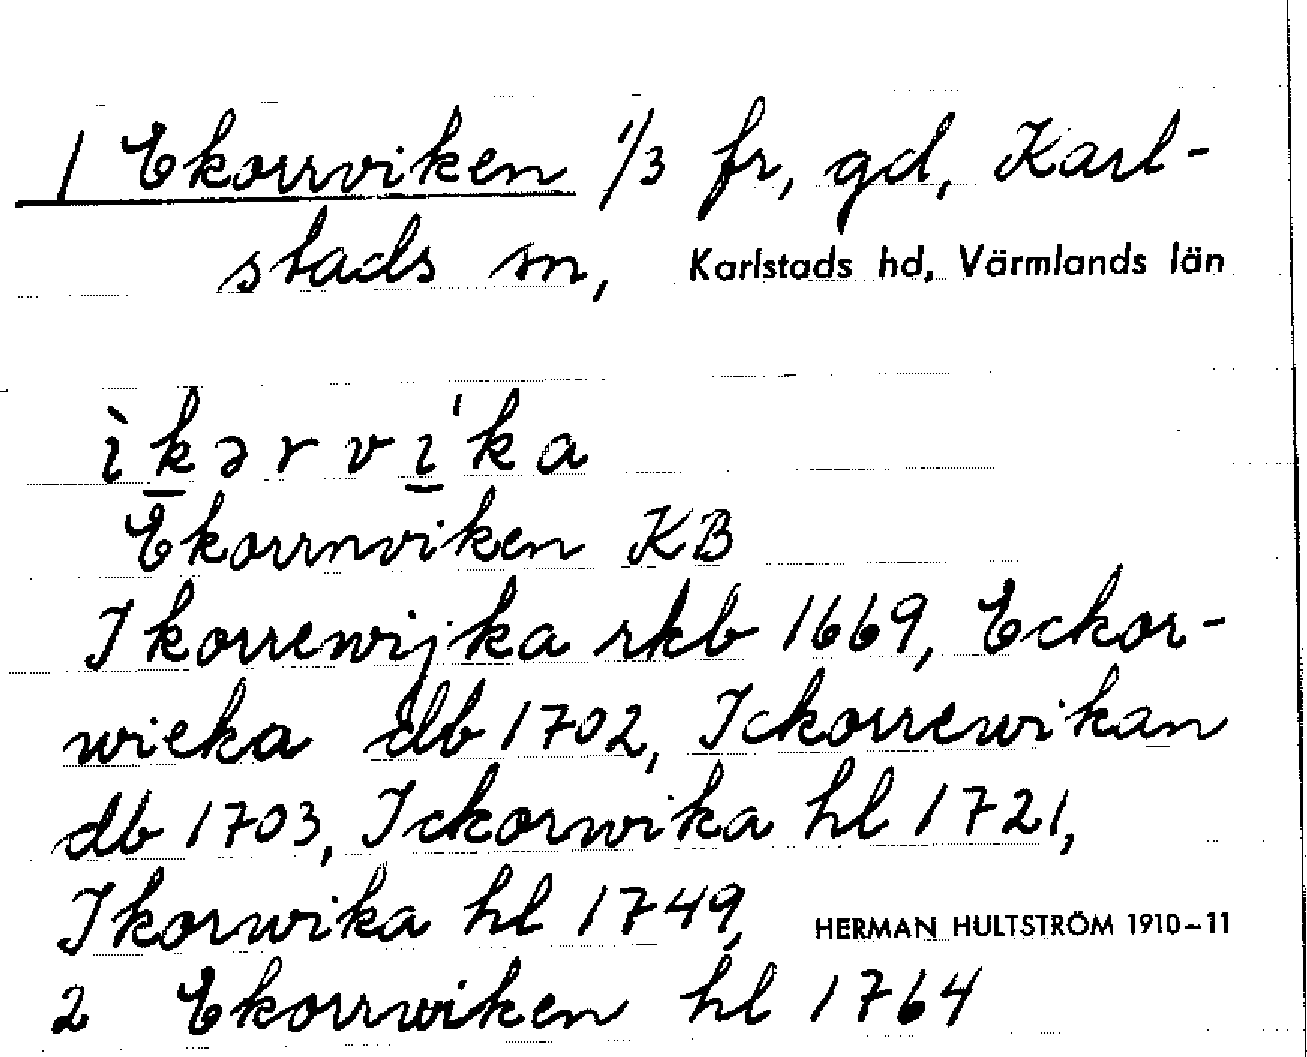 1 Ekorrviken 1/3 fr, gd, Karl-
stads sn, Karlstads hd, Värmlands län
ìkərvı̍ka
Ekorrnviken KB
Ikorrewijka rkb 1669, Eckor-
wieka db 1702, Ickorrewikan
db 1703, Ickorwika hl 1721,
Ikorwika hl 1749, HERMAN HULTSTRÖM 1910-11
2 Ekorrwiken hl 1764